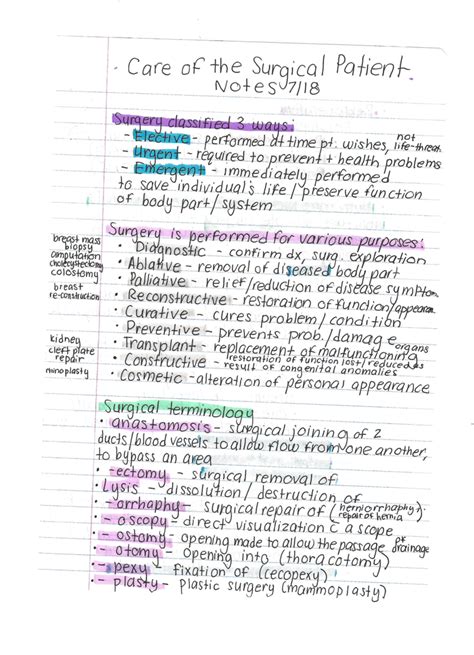 Care of the Surgical Patient
Notes 7/18
Surgery classified 3 ways:
- Elective - performed at time pt. wishes, not life-threat
- Urgent - required to prevent + health problems
- Emergent - immediately performed
to save individual's life/preserve function
of body part/system
Surgery is performed for various purposes:
breast mass biopsy
• Diagnostic - confirm dx, surg. exploration
cholecystectomy
colostomy
• Ablative - removal of diseased body part
• Palliative - relief/reduction of disease symptom
breast re-construction
• Reconstructive - restoration of function/appearan
• Curative - cures problem/condition
• Preventive - prevents prob./damage
kidney
• Transplant - replacement of malfunctioning organs
cleft plate repair
• Constructive - restoration of function lost/reduced as result of congenital anomalies
• Cosmetic - alteration of personal appearance
Surgical terminology
• anastomosis - surgical joining of 2
ducts/blood vessels to allow flow from one another,
to bypass an area
• -ectomy - surgical removal of
• Lysis - dissolution/destruction of
• -orrhaphy - surgical repair of (herniorrhaphy: repair of hernia)
• -oscopy - direct visualization c a scope
• -ostomy - opening made to allow the passage of drainage
• -otomy - opening into (thoracotomy)
• -pexy - fixation of (cecopexy)
• -plasty - plastic surgery (mammoplasty)